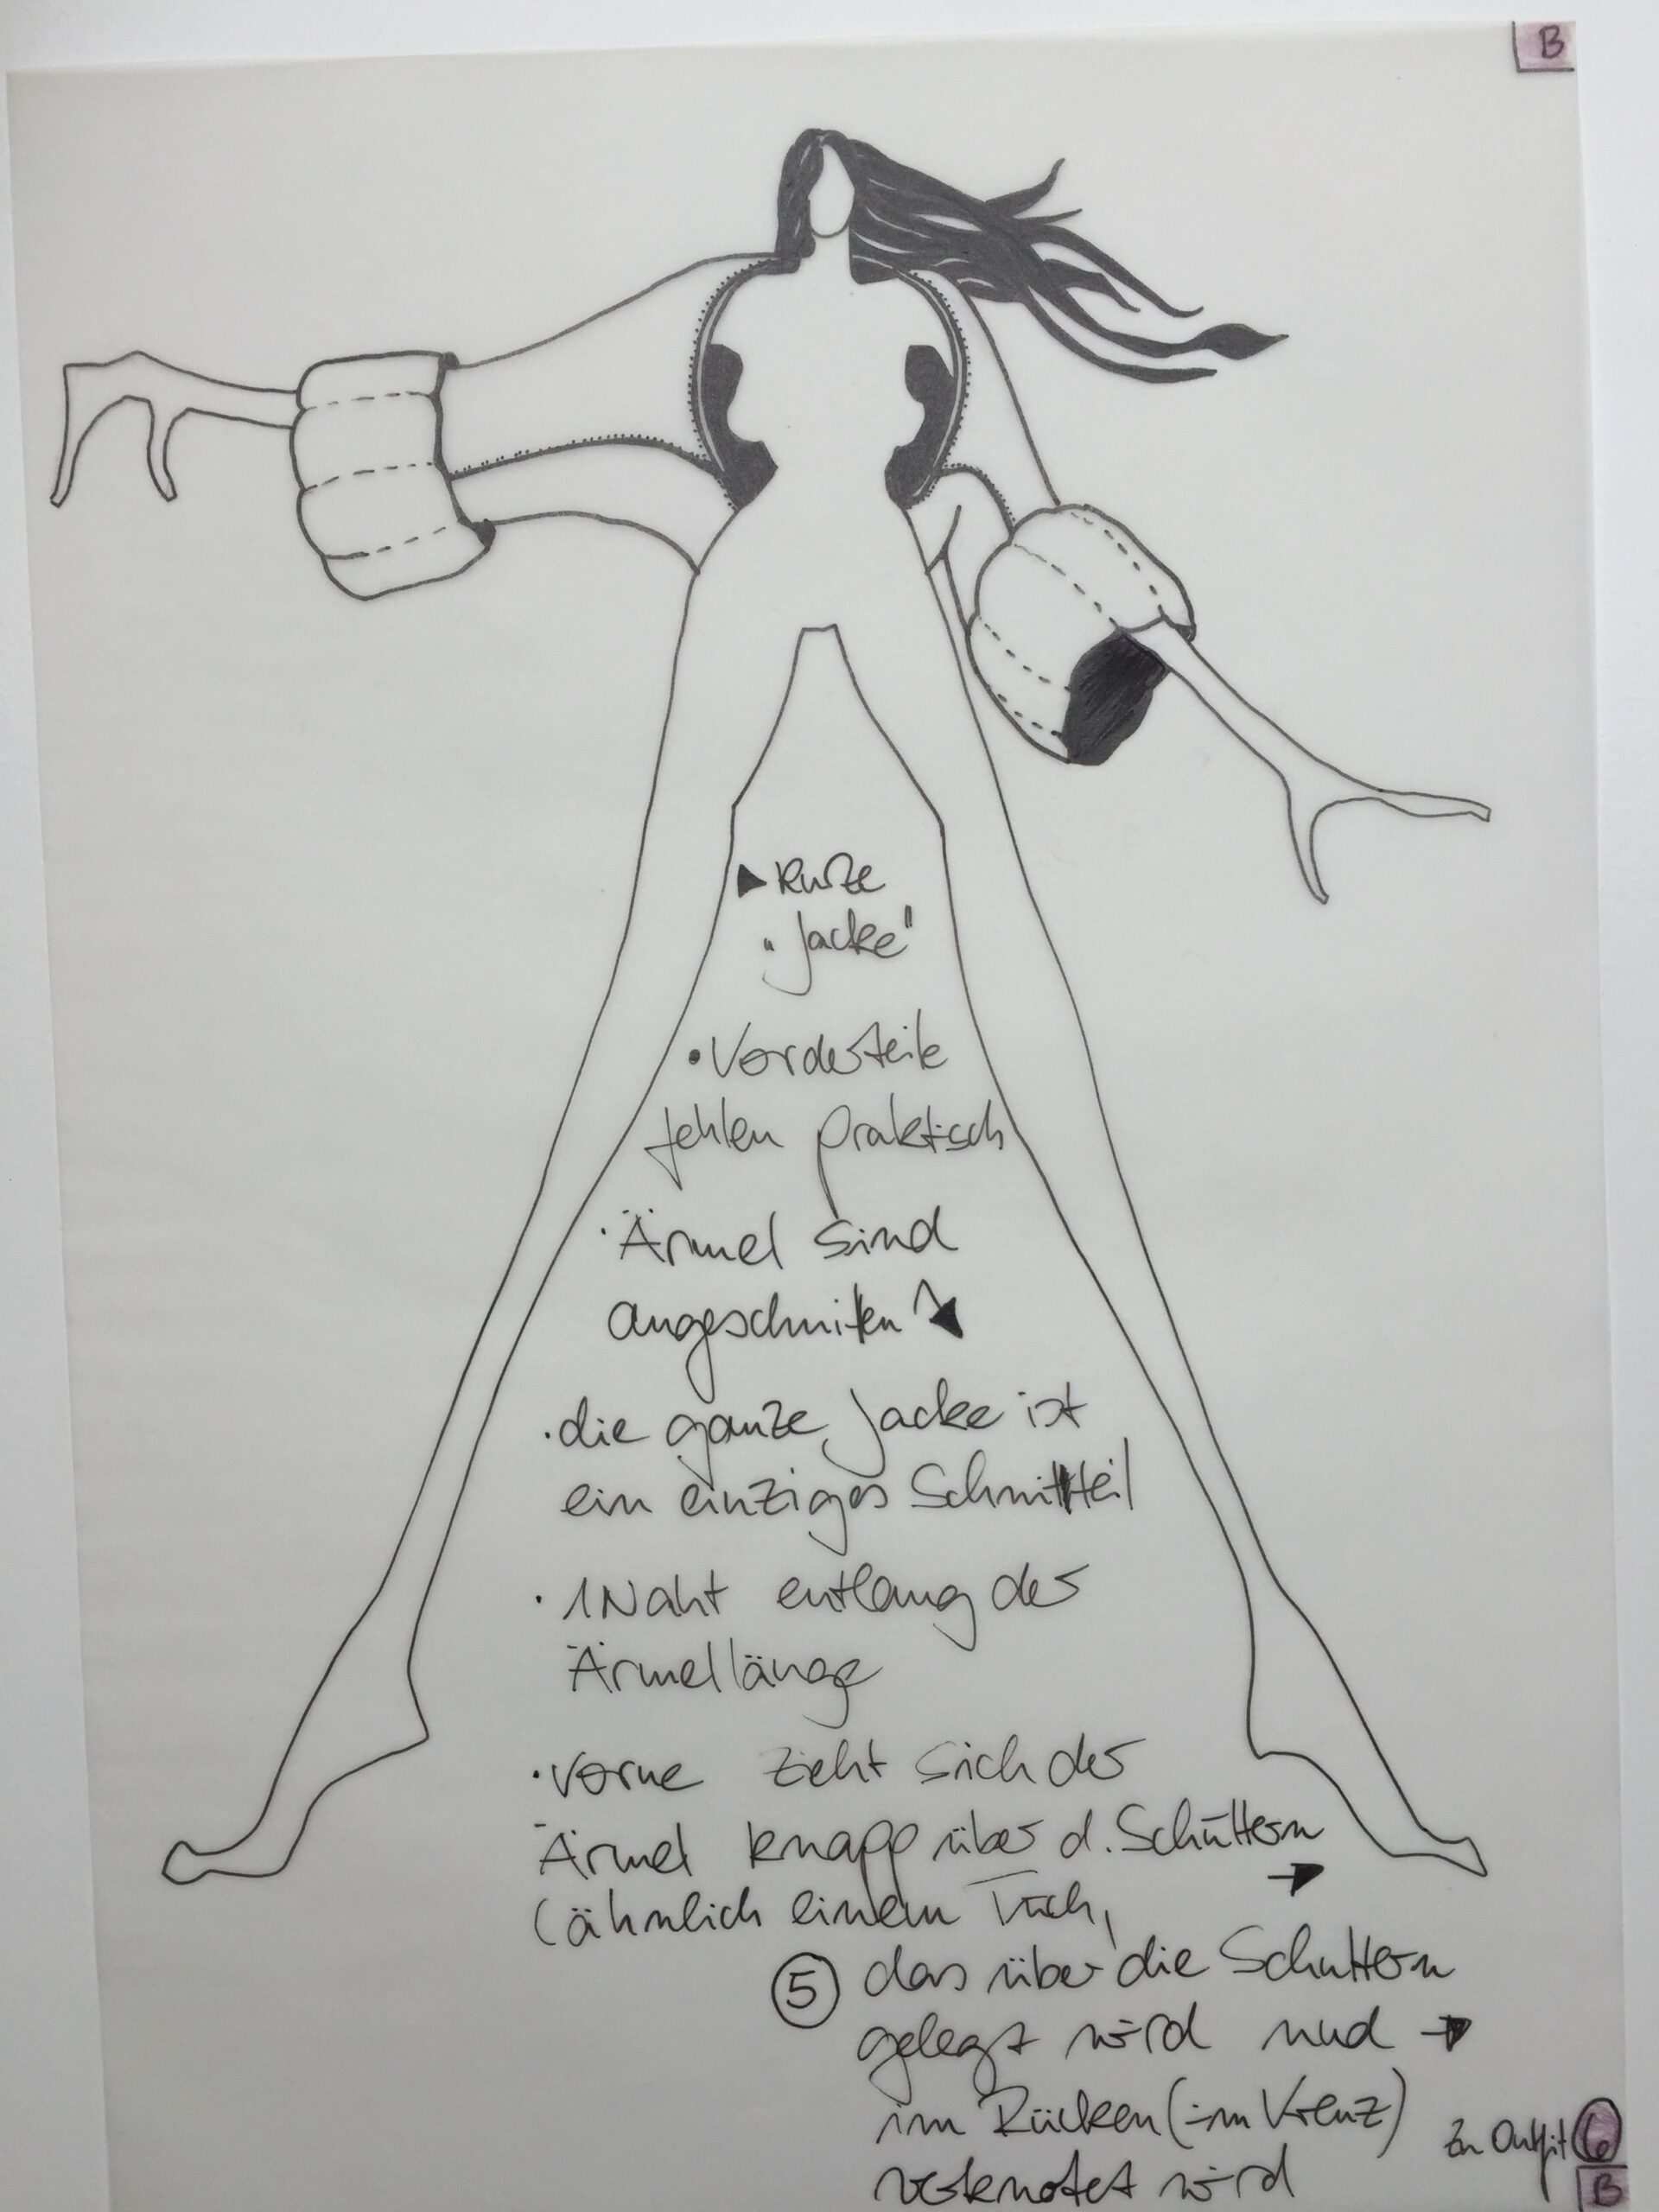 B
kurze
„Jacke"
• Vorderteile
fehlen praktisch
· Ärmel sind
angeschnitten
· die ganze Jacke ist
ein einziges Schnittteil
· 1 Naht entlang der
Ärmellänge
· vorne zieht sich der
Ärmel knapp über d. Schultern
(ähnlich einem Tuch,
5 das über die Schultern
gelegt wird und
im Rücken (im Kreuz)
verknotet wird
Zu Outfit 6
B